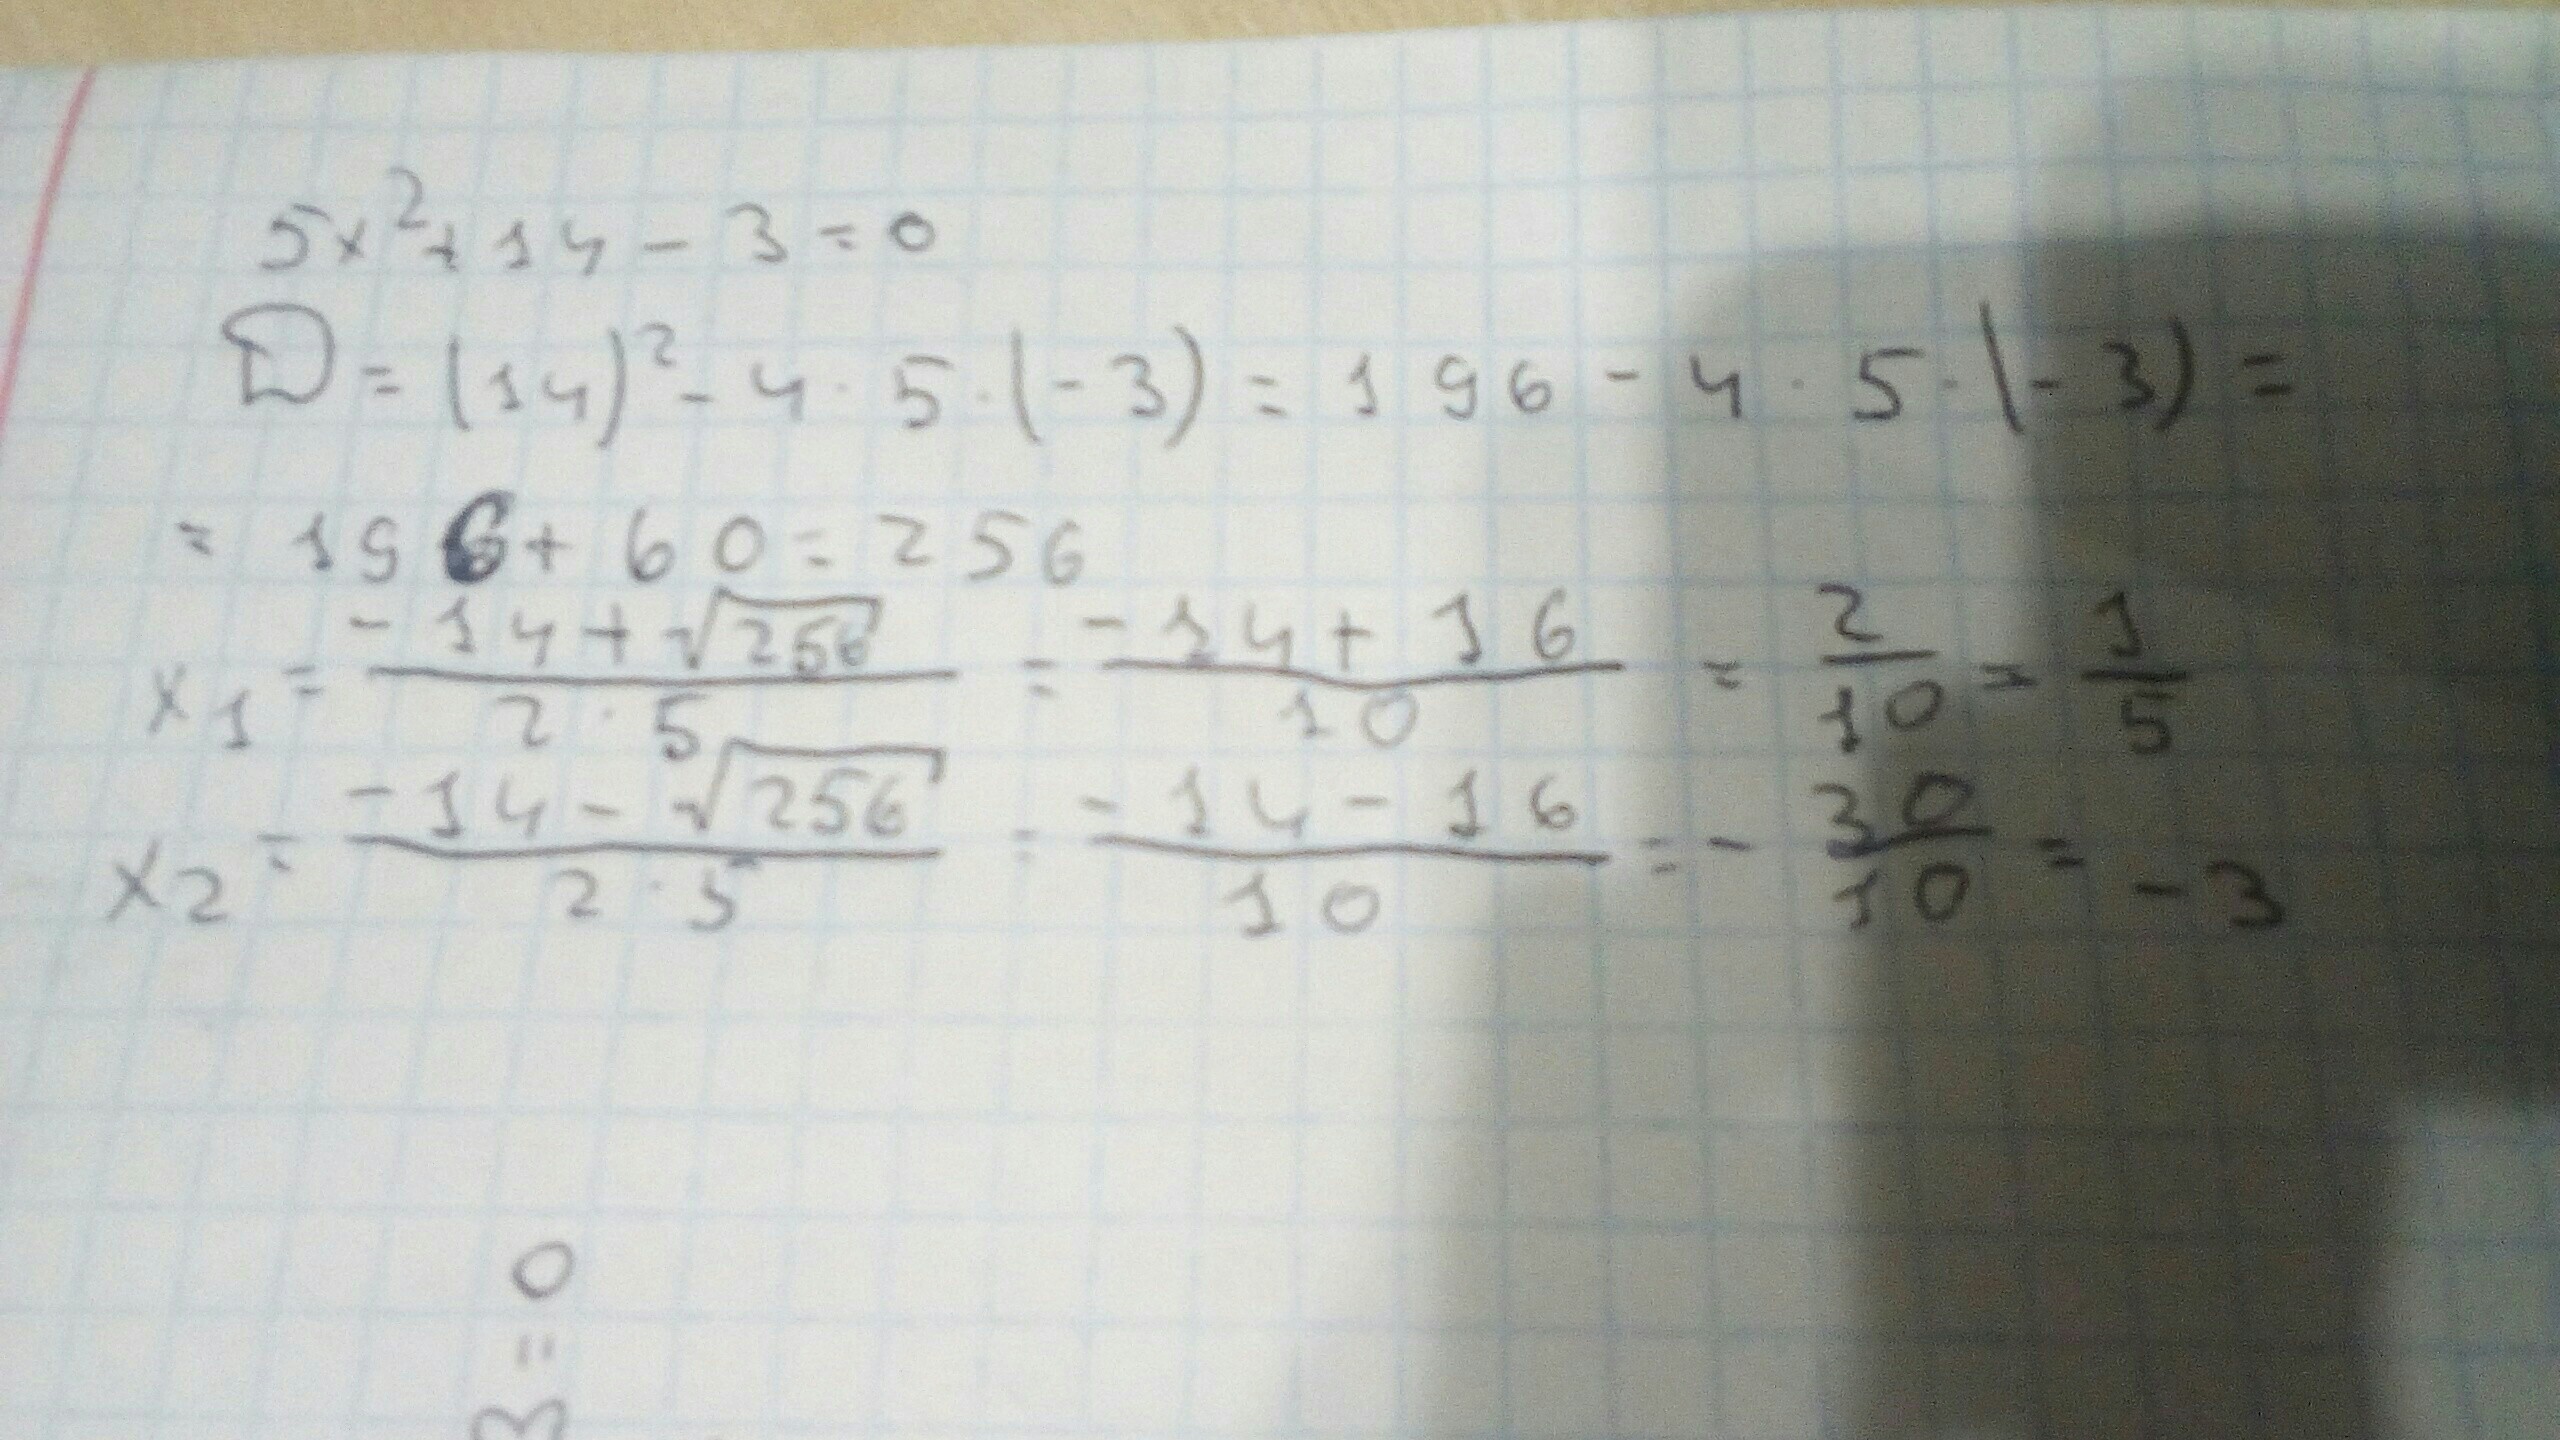 5x²+14-3=0
D=(14)²-4·5·(-3)=196-4·5·(-3)=
=196+60=256
x₁=(-14+√256)/(2·5)=(-14+16)/10=2/10=1/5
x₂=(-14-√256)/(2·5)=(-14-16)/10=-30/10=-3
3=0